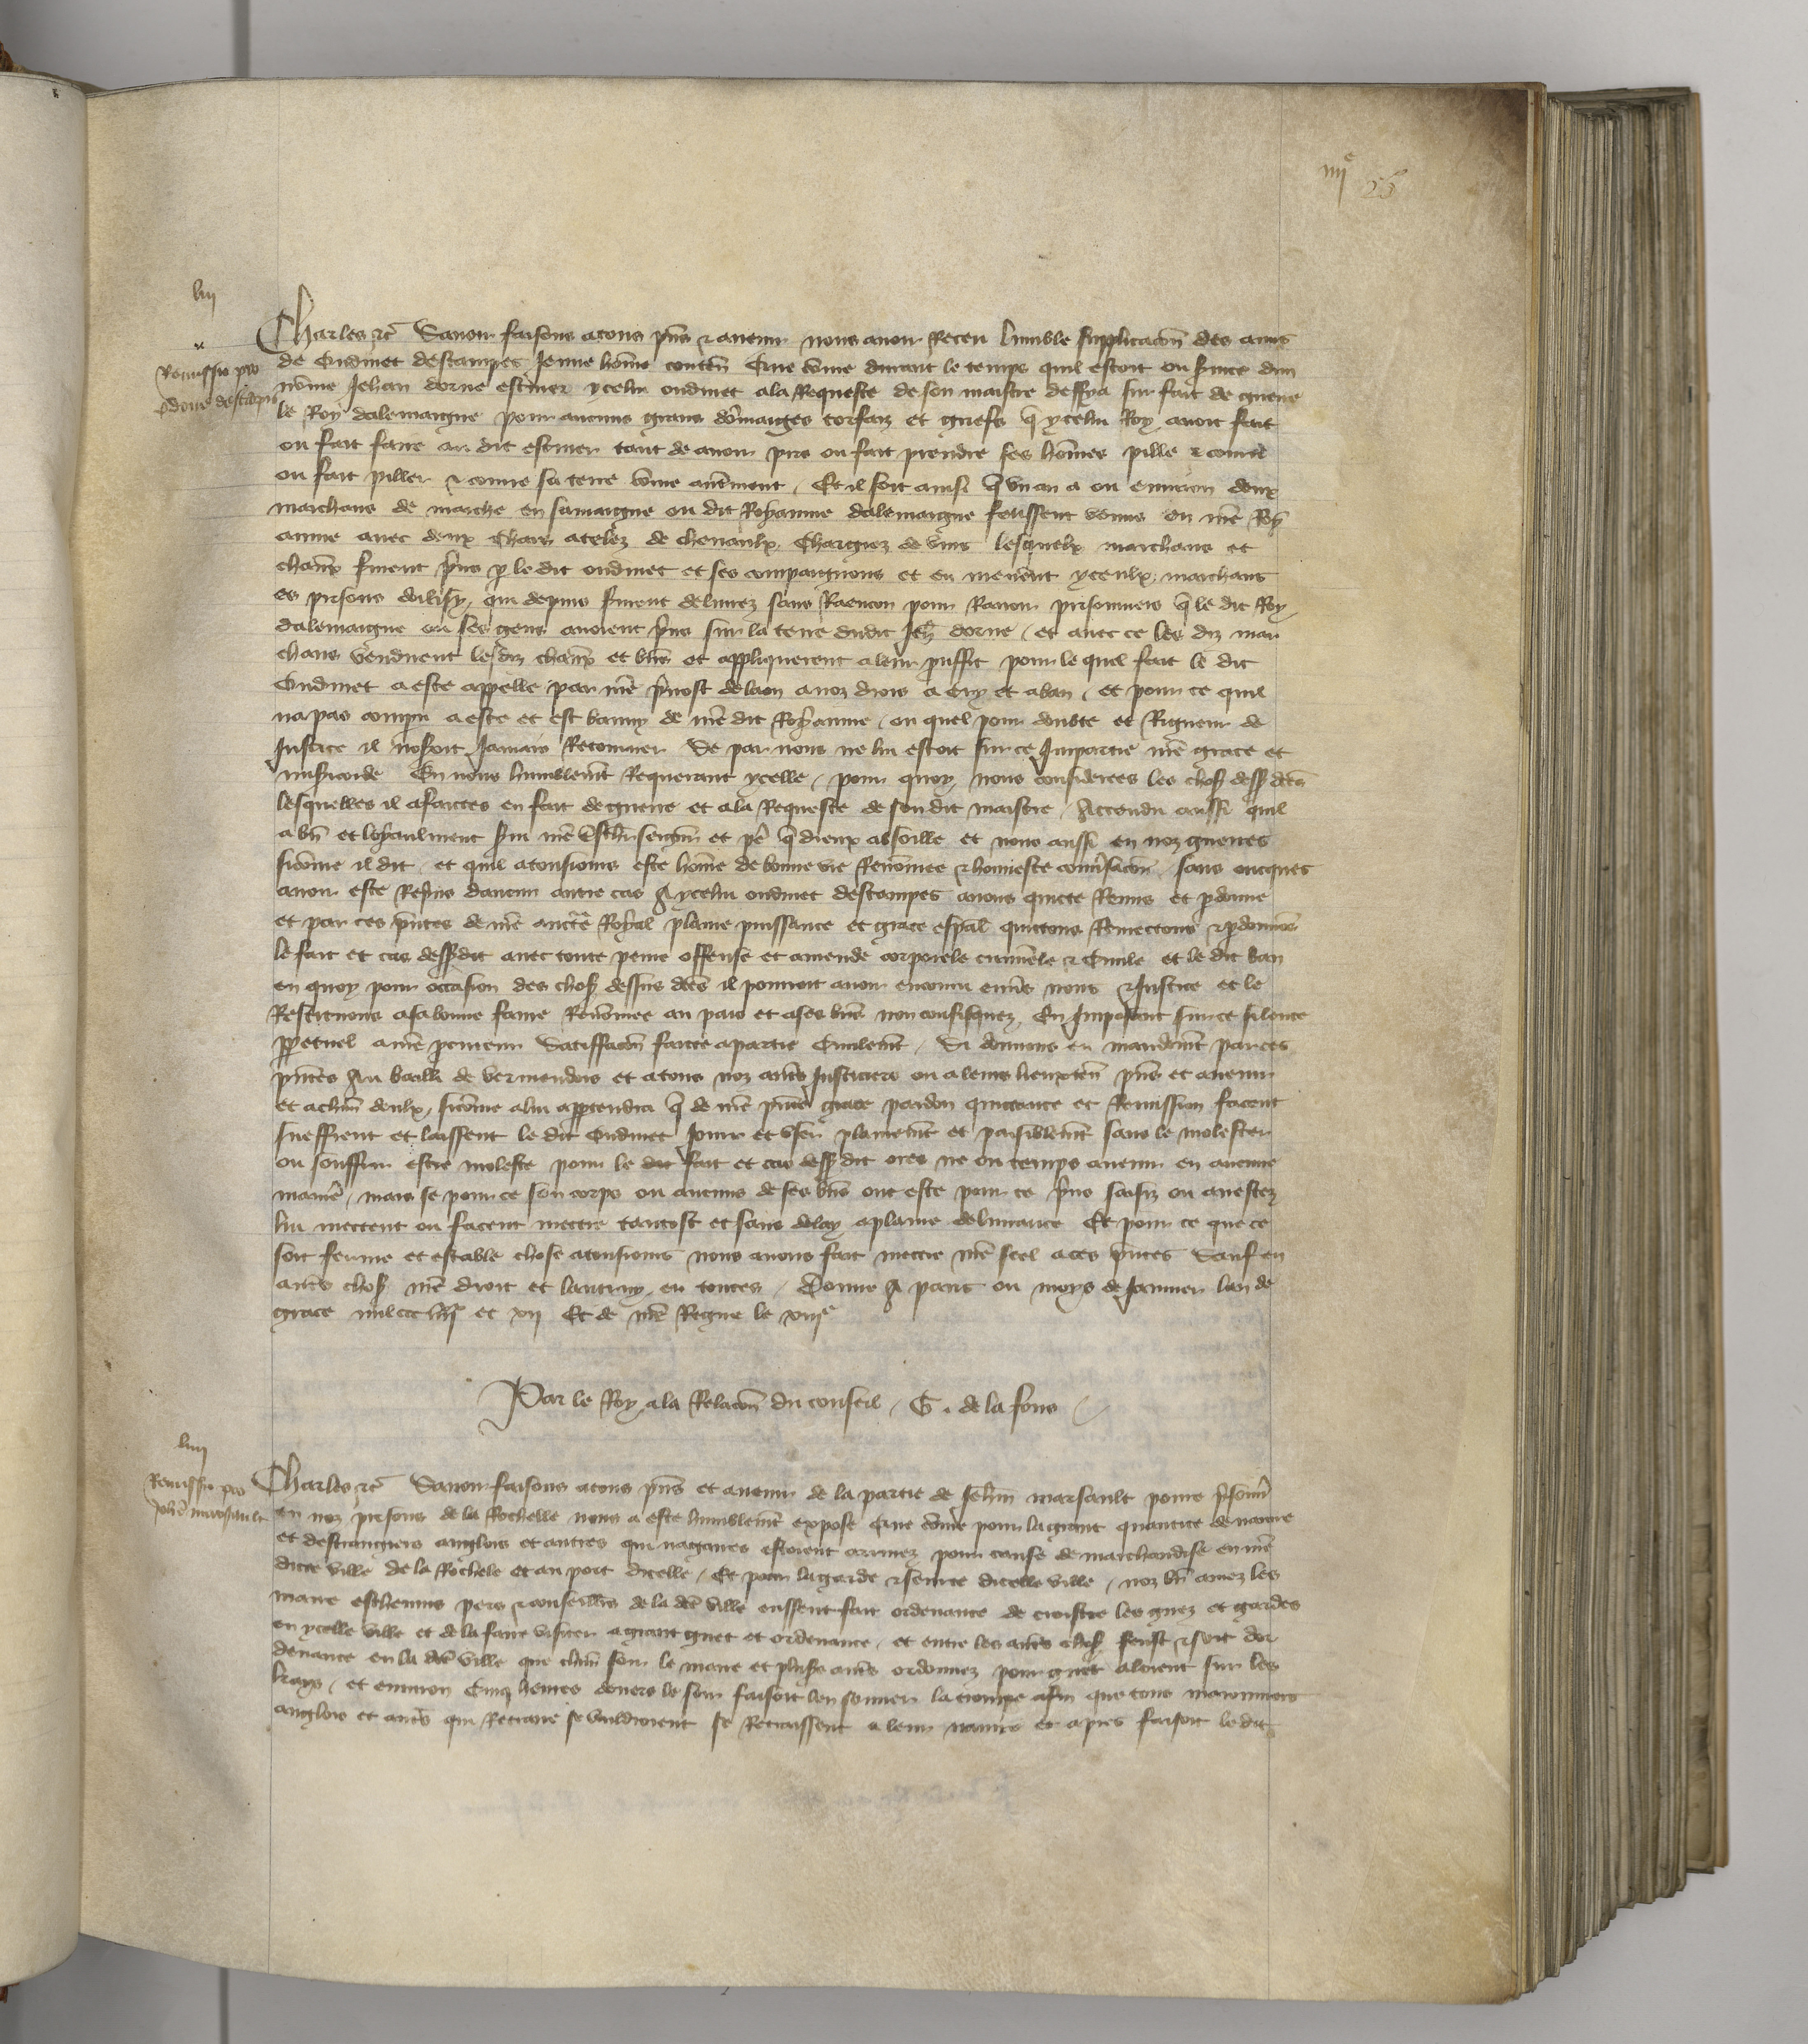 iiijᵉ 26
liij
Charles etc̄ Sauoir faisons a tous p̄ns et auenir nous auoir Receu lumble supplicac̄on des amis
Remissio pro
odone destampis
de Oudinet destampes Jeune hōme conten̄ Que cōme durant le temps quil estoit ou s̄uice dun
nōme Jehan dorne escuier ycelui oudinet a la Requeste de son maistre deffya sur fait de guerre
le Roy dalemaigne pour aucuns grans dōmaiges torfaiz et griefs q̄ ycelui Roy auoit fait
ou fait faire au dit escuier tant de auoir pris ou fait prendre ses hōmes pille et couru
ou fait piller et courre sa terre cōme autrement / Et il soit ainsi q̄ vn an a ou enuiron deux
marchans de marche en samaigne ou dit Royaume dalemaigne feussent venus en nr̄e Roy
aume auec deux chars atelez de cheuaulx chargiez de vins lesquelx marchans et
chars furent p̄ns p̄ le dit oudinet et ses compaignons et en menerent yceulx marchans
es prisons dulisy, qui depuis furent deliurez sans Raencon pour Rauoir prisonniers q̄ le dit Roy
dalemaigne ou ses gens auoient p̄ns sur la terre dudit Jeh̄ dorne / et auec ce les diz mar
chans vendirent lesdiz chars et vins et appliquerent a leur prouffit pour le quel fait le dit
Oudinet a este appelle par nr̄e p̄uost de laon a noz drois a cry et a ban / et pour ce quil
na pas compu a este et est banny de nr̄e dit Royaume / ou quel pour doubte et Rigueur de
Justice il noseroit Jamais Retourner Se par nous ne lui estoit sur ce Impartie nr̄e grace et
misericorde En nous humblem̄t Requerant ycelle / pour quoy nous considerees les choses dess̄ dc̄es
lesquelles il a faictes en fait de guerre et a la Requeste de son dit maistre / Attendu aussi quil
a bn̄ et loyaulment s̄ui nr̄e treschier seigneur et pe q̄ dieux absoille et nous aussi en noz guerres
sicōme il dit / et quil a tousiours este hōme de bonne vie Renōmee et honneste conuersac̄on sans oncques
auoir este Repris daucun autre cas A ycelui oudinet destampes auons quicte Remis et p̄donne
et par ces p̄ntes de nr̄e auctē Royal plaine puissance et grace esp̄al quittons Remectons et p̄donnons
le fait et cas dess̄dit auec toute peine offense et amende corporele criminele et Ciuile et le dit ban
en quoy pour occasion des choses dessus dc̄es il pourroit auoir encouru enu̅s nous et Justice et le
Restituons a sa bonne fame Renōmee au pais et a ses biens non confisquez, En Imposant sur ce silence
p̄petuel a nr̄e procureur Satisfacc̄on faicte a partie Ciuilem̄t / Si donnons en mandem̄t par ces
p̄ntes Au bailli de vermendois et a tous noz aut̄s Justiciers ou a leurs lieuxten̄ p̄ns et auenir
et a chūn deulx, sicōme a lui appartendra q̄ de nr̄e p̄nte grace pardon quictance et Remission facent
sueffrent et laissent le dit Oudinet Jouir et vser plainem̄t et paisiblem̄t sans le molester
ou souffrir estre moleste pour le dit fait et cas dess̄dit ores ne ou temps auenir en aucune
maniē, mais se pour ce son corps ou aucuns de ses bn̄s ont este pour ce p̄ns saisiz ou arrestez
lui mectent ou facent mectre tantost et sans delay a plaine deliurance Et pour ce que ce
soit ferme et estable chose a tousiours nous auons fait mectre nr̄e seel a ces p̄ntes Sauf en
aut̄s choses nr̄e droit et lautruy en toutes / Donne A paris ou moys de Januier lan de
grace mil ccc iiijˣˣ et xij Et de nr̄e Regne le xiijᵉ
Par le Roy a la Relac̄on du conseil / G. de la fons
liiij
Remissio pro
Joh̄e marsault
Charles etc̄ Sauoir faisons a tous p̄ns et auenir de la partie de Jeh̄n marsault poure p̄sonn̄
en noz prisons de la Rochelle nous a este humblem̄t expose Que cōme pour la grant quantite de nauire
et destrangiers anglois et autres qui nagaires estoient arriuez pour cause de marchandise en nr̄e
dicte ville de la Rochele et au port dicelle / Et pour la garde et seurte dicelle ville / noz bn̄ amez les
maire escheuins pers et conseillers de la dc̄e ville eussent fait ordenance de croistre les guez et gardes
en ycelle ville et de la faire visiter a grant guet et ordenance / et entre les aut̄s choses feust et soit dor
denance en la dc̄e ville que chūn soir le maire et plus̄s aut̄s ordonnez pour guet aloient sur les
kays / et enuiron Cinq heures deuers le soir faisoit len sonner la trompe afin que tous maronniers
anglois et aut̄s qui Retraire se vouldroient se Retraissent a leur nauire et apres faisoit le dit